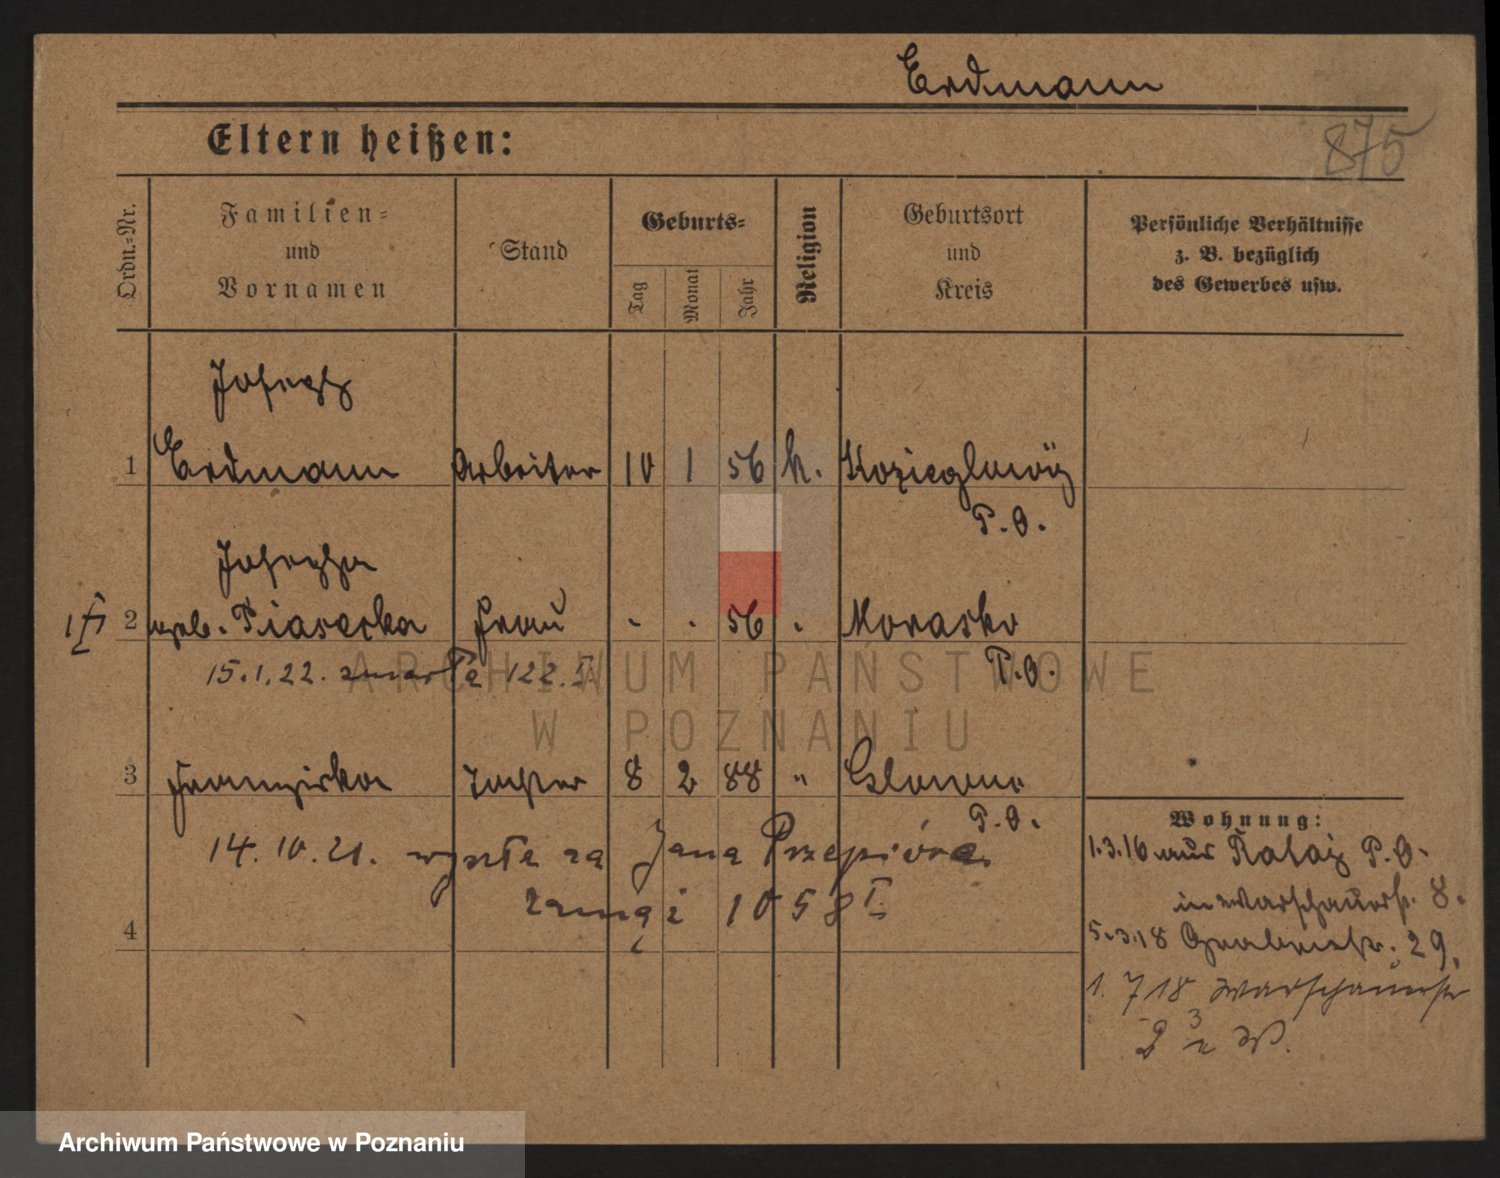 Erdmann
875
Eltern heißen:
Ordn.-Nr.
Familien-
und
Vornamen
Stand
Geburts-
Tag
Monat
Jahr
Religion
Geburtsort
und
Kreis
Persönliche Verhältnisse
z. B. bezüglich
des Gewerbes usw.
Joseph
1 Erdmann Arbeiter 10 1 56 k. Kozieglowy
P. O.
Josepha
2 geb. Piasecka Frau - . 56 . Morasko
15.1.22. zmarła 122. I. P. O.
3 Franziska Tochter 8 2 88 " Glowno
P. O.
14. 10. 21. wyszła za Jana Przepióra
zamąż 1058 I
4
Wohnung:
1.3.16 aus Rataj P. O.
in Warschauerstr. 8.
5.3.18 Grabenstr. 29.
1. 7 18 Warschauerstr
3
ARCHIWUM PAŃSTWOWE
W POZNANIU
Archiwum Państwowe w Poznaniu